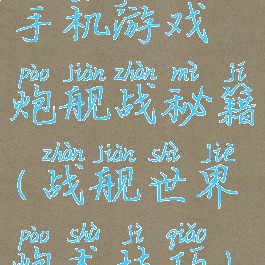 手机游戏
pào jiàn zhàn mì jí
炮舰战秘籍
zhàn jiàn shì jiè
(战舰世界
pào shù jì qiǎo
炮术技巧)